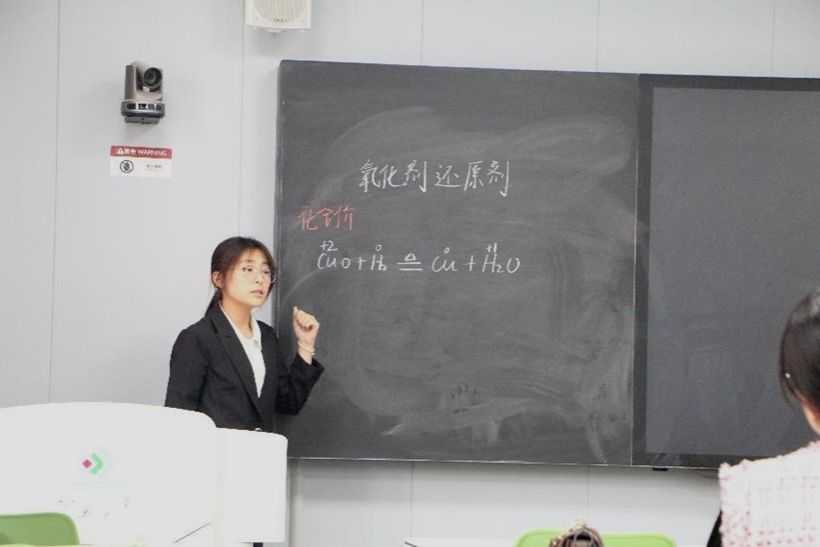 警告 WARNING
氧化剂 还原剂
化合价
+2 0 0 +1
CuO + H₂ ≜ Cu + H₂O